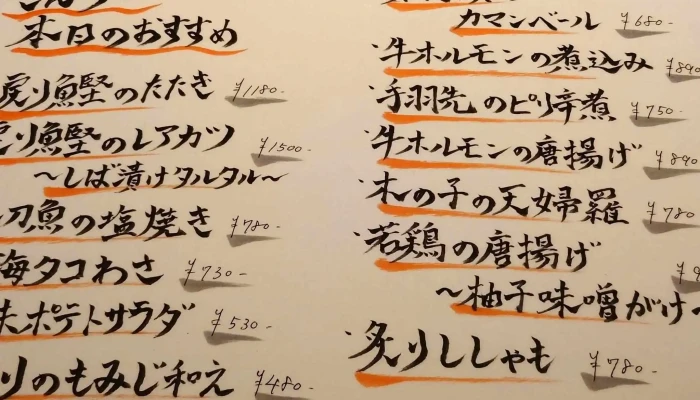 本日のおすすめ
戻り鰹のたたき ¥1180-
戻り鰹のレアカツ ¥1500-
～しば漬けタルタル～
刀魚の塩焼き ¥780-
海タコわさ ¥730-
ポテトサラダ ¥530-
りのもみじ和え ¥480-
カマンベール ¥680-
・牛ホルモンの煮込み ¥890
・手羽先のピリ辛煮 ¥750-
・牛ホルモンの唐揚げ ¥890-
・木の子の天婦羅 ¥780-
・若鶏の唐揚げ ¥9
～柚子味噌がけ～
・炙りししゃも ¥780-